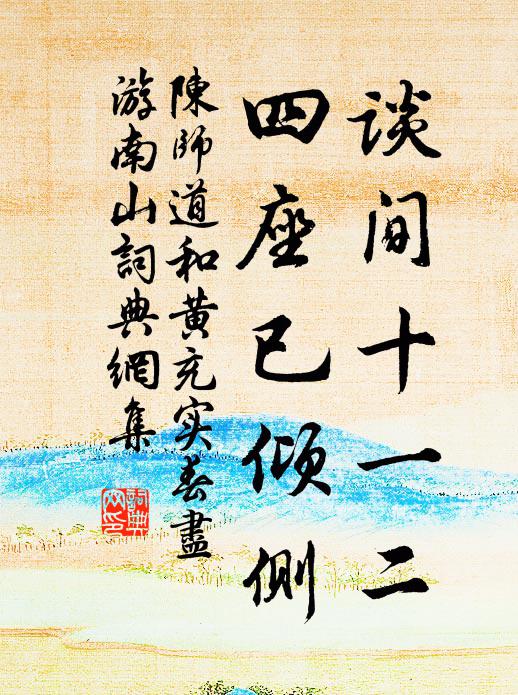 谈间十一二
四座已倾侧
陳師道和黄充实春盡
游南山詞典網集